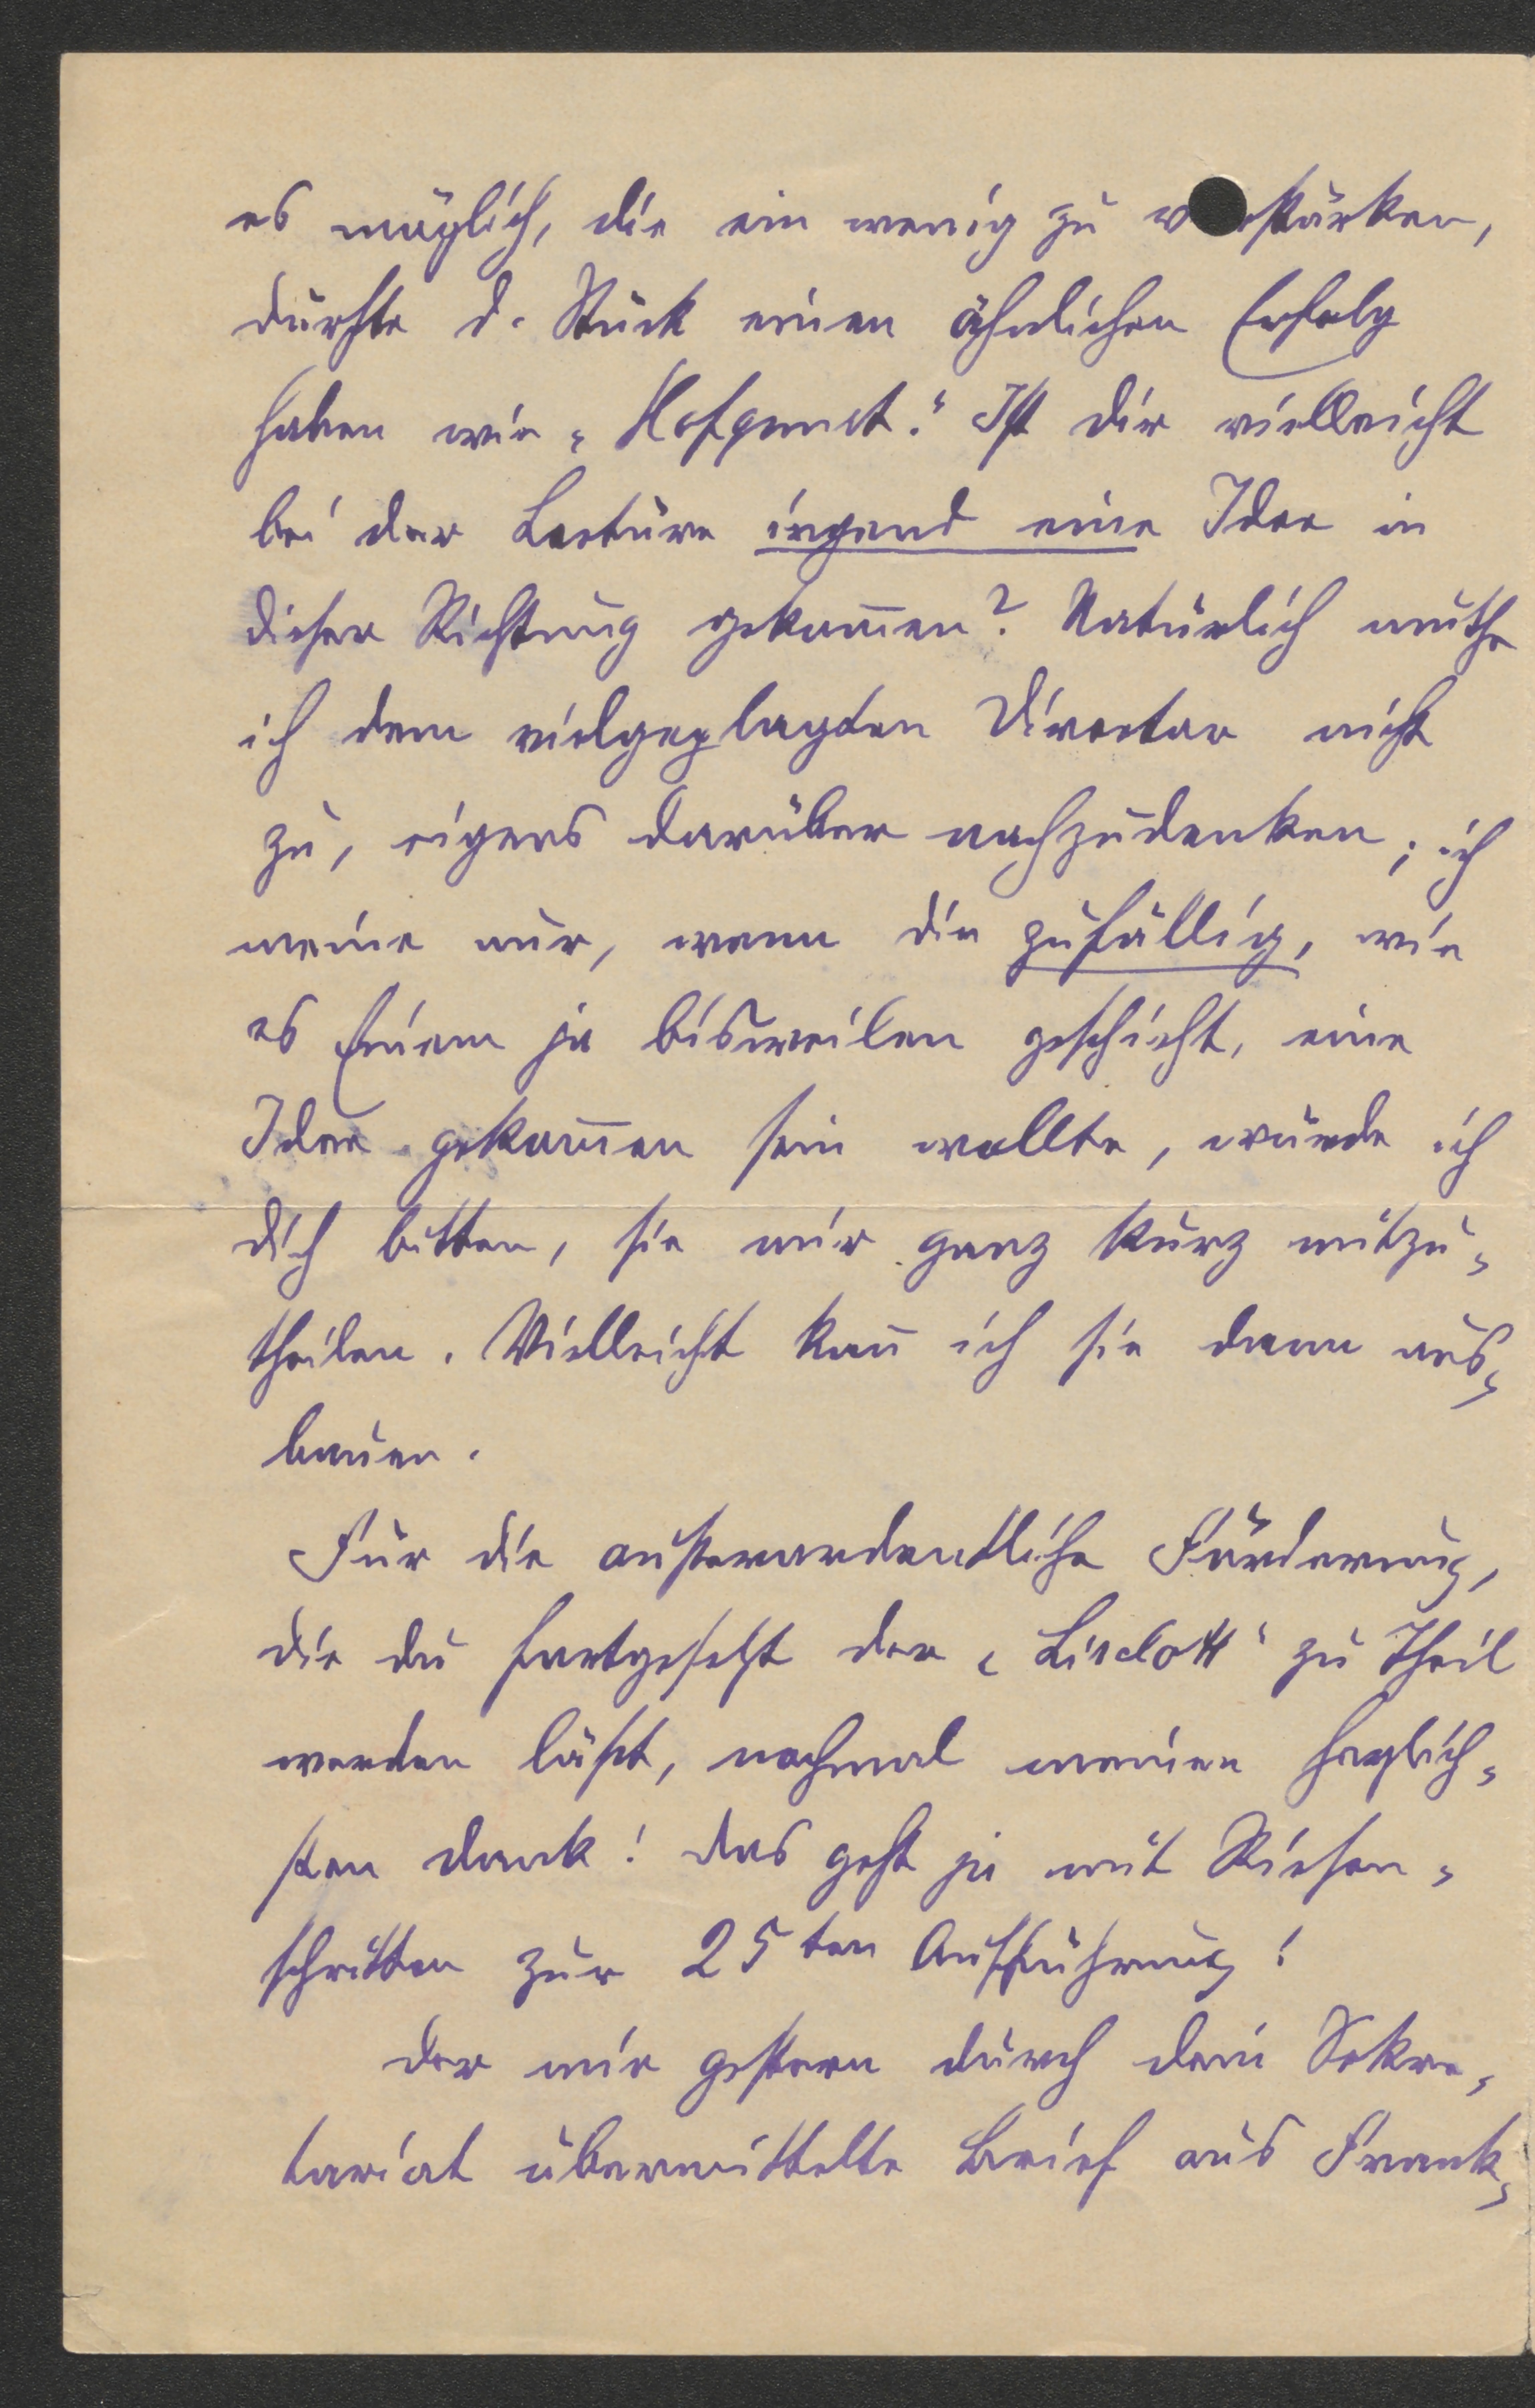 es möglich, die ein wenig zu verstärken,
dürfte d. Stück einen ähnlichen Erfolg
haben wie „Hofgunst.“ Ist dir vielleicht
bei der Lectüre irgend eine Idee in
dieser Richtung gekom̄en? Natürlich muthe
ich dem vielgeplagten Director nicht
zu, eigens darüber nachzudenken; ich
meine nur, wenn dir zufällig, wie
es Einem ja bisweilen geschieht, eine
Idee gekom̄en sein sollte, würde ich
dich bitten, sie mir ganz kurz mitzu-
theilen. Vielleicht kan̄ ich sie dann aus-
bauen.
Für die außerordentliche Förderung,
die du fortgesetzt der „Liselott“ zu Theil
werden läßt, nochmal meinen herzlich-
sten Dank! Das geht ja mit Riesen-
schritten zur 25ten Aufführung!
Der mir gestern durch dein Sekre-
tariat übermittelte Brief aus Frank-